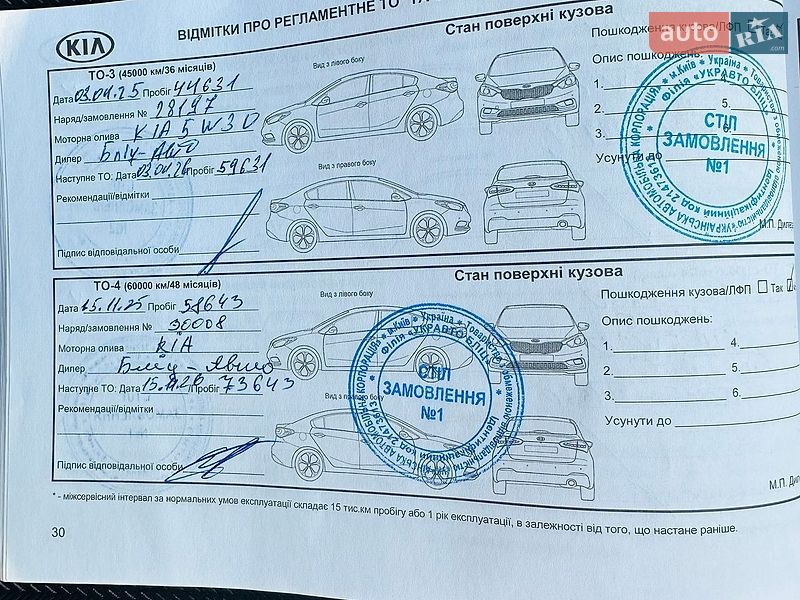 ВІДМІТКИ ПРО РЕГЛАМЕНТНЕ ТО
auto RIA .com
KIA
Стан поверхні кузова
ТО-3 (45000 км/36 місяців)
Вид з лівого боку
Пошкодження кузова/ЛФП
Дата 03.04.25 Пробіг 44631
Опис пошкоджень:
Наряд/замовлення № 28197
1.
4.
Моторна олива KIA 5W30
2.
5.
Дилер Бліц-Авто
3.
6.
Наступне ТО: Дата 03.04.26 Пробіг 59631
Вид з правого боку
Усунути до
Рекомендації/відмітки
Підпис відповідальної особи
М.П. Дилер
м.Київ * Україна * Товариство з обмеженою відповідальністю * УКРАЇНСЬКА АВТОМОБІЛЬНА КОРПОРАЦІЯ
Філія «УКРАВТО БЛІЦ»
Ідентифікаційний код 21473673
СТІЛ
ЗАМОВЛЕННЯ
№1
ТО-4 (60000 км/48 місяців)
Стан поверхні кузова
Вид з лівого боку
Пошкодження кузова/ЛФП Так
Дата 15.11.25 Пробіг 58643
Опис пошкоджень:
Наряд/замовлення № 90008
1.
4.
Моторна олива KIA
2.
5.
Дилер Бліц-Авто
3.
6.
Наступне ТО: Дата 15.11.26 Пробіг 73643
Вид з правого боку
Усунути до
Рекомендації/відмітки
Підпис відповідальної особи
М.П.
м.Київ * Україна * Товариство з обмеженою відповідальністю * УКРАЇНСЬКА АВТОМОБІЛЬНА КОРПОРАЦІЯ
Філія «УКРАВТО БЛІЦ»
Ідентифікаційний код 21473673
СТІЛ
ЗАМОВЛЕННЯ
№1
* - міжсервісний інтервал за нормальних умов експлуатації складає 15 тис.км пробігу або 1 рік експлуатації, в залежності від того, що настане раніше.
30